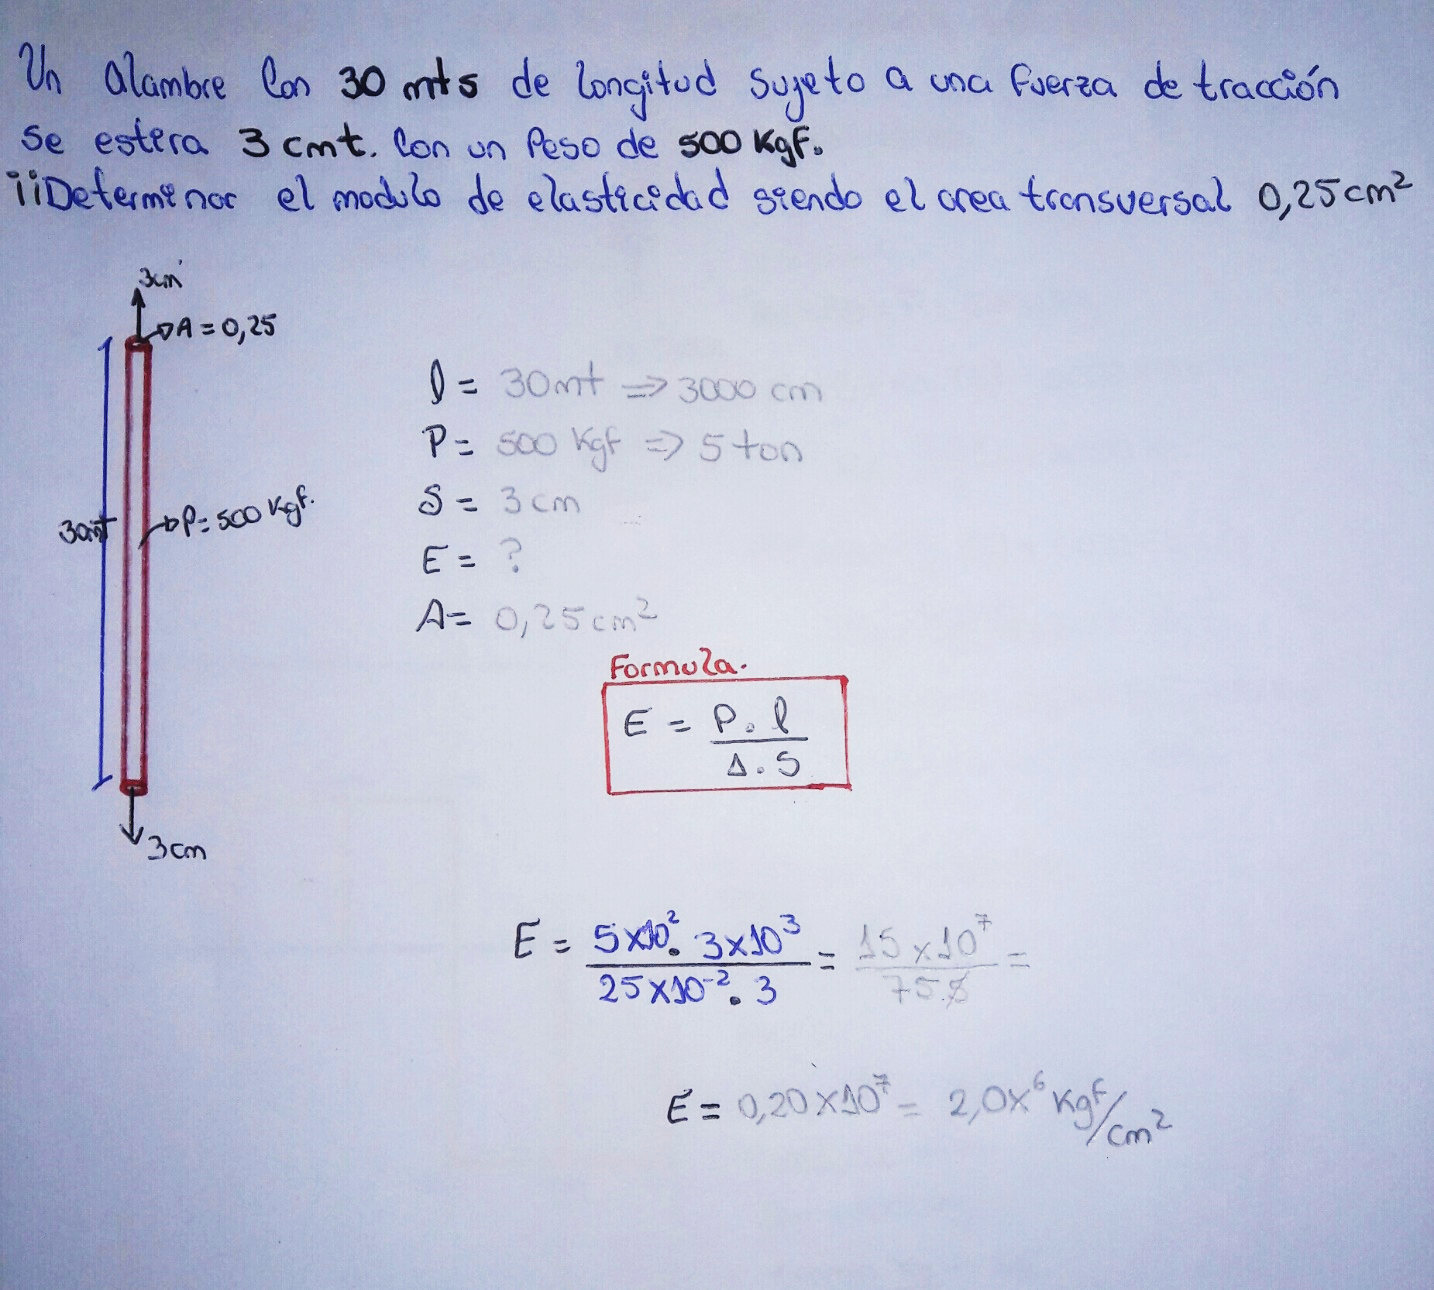 Un alambre Con 30 mts de longitud Sujeto a una fuerza de tracción
se estira 3 cmt. Con un Peso de 500 Kgf.
¡¡Determinar el modulo de elasticidad siendo el area transversal 0,25 cm²
3cm
A = 0,25
l = 30mt => 3000 cm
P = 500 Kgf => 5 ton
S = 3 cm
30mt
P = 500 Kgf.
E = ?
A = 0,25 cm²
Formula.
E = P . l / Δ . S
3cm
E = 5x10². 3x10³ / 25x10⁻². 3 = 15 x10⁷ / 75 =
E = 0,20 x10⁷ = 2,0x⁶ Kgf/cm²